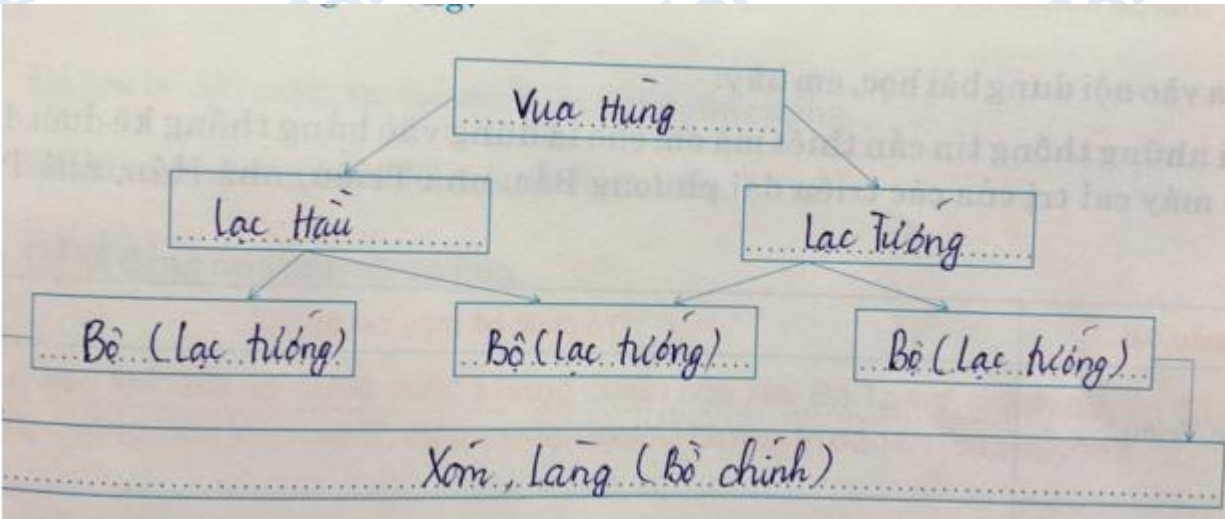 Vua Hùng
Lạc Hầu
Lạc Tướng
Bộ (Lạc tướng)
Bộ (lạc tướng)
Bộ (lạc tướng)
Xóm, Làng (Bồ chính)